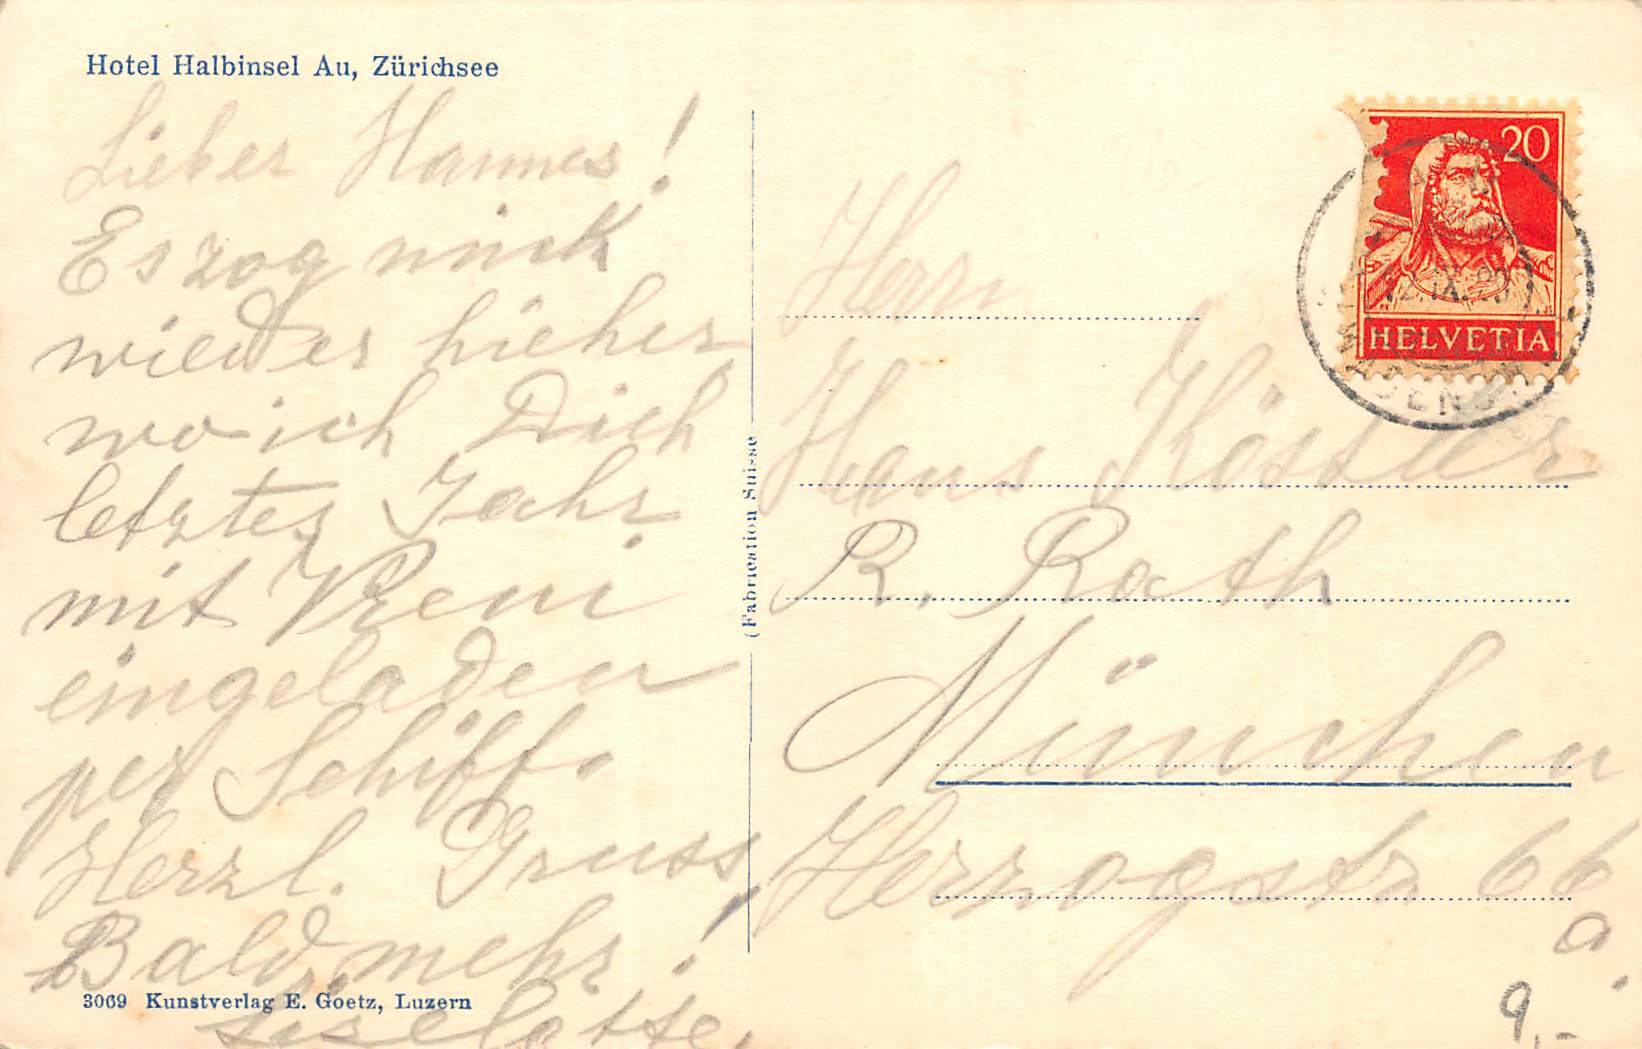 Hotel Halbinsel Au, Zürichsee
Lieber Hannes!
Es zog mich
wieder hieher
wo ich Dich
letztes Jahr
mit Vreni
eingeladen
per Schiff.
Herzl. Gruss,
Bald mehr!
Liselotte.
3069 Kunstverlag E. Goetz, Luzern
(Fabrication Suisse
20
HELVETIA
Herrn
Hans Kössler
R. Rath
München
Herzogstr 66
a.
9.-